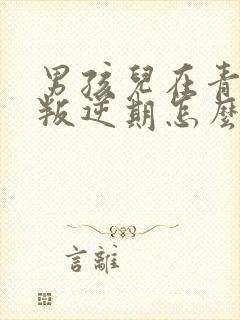 男孩兒在青
叛逆期怎麼
言離